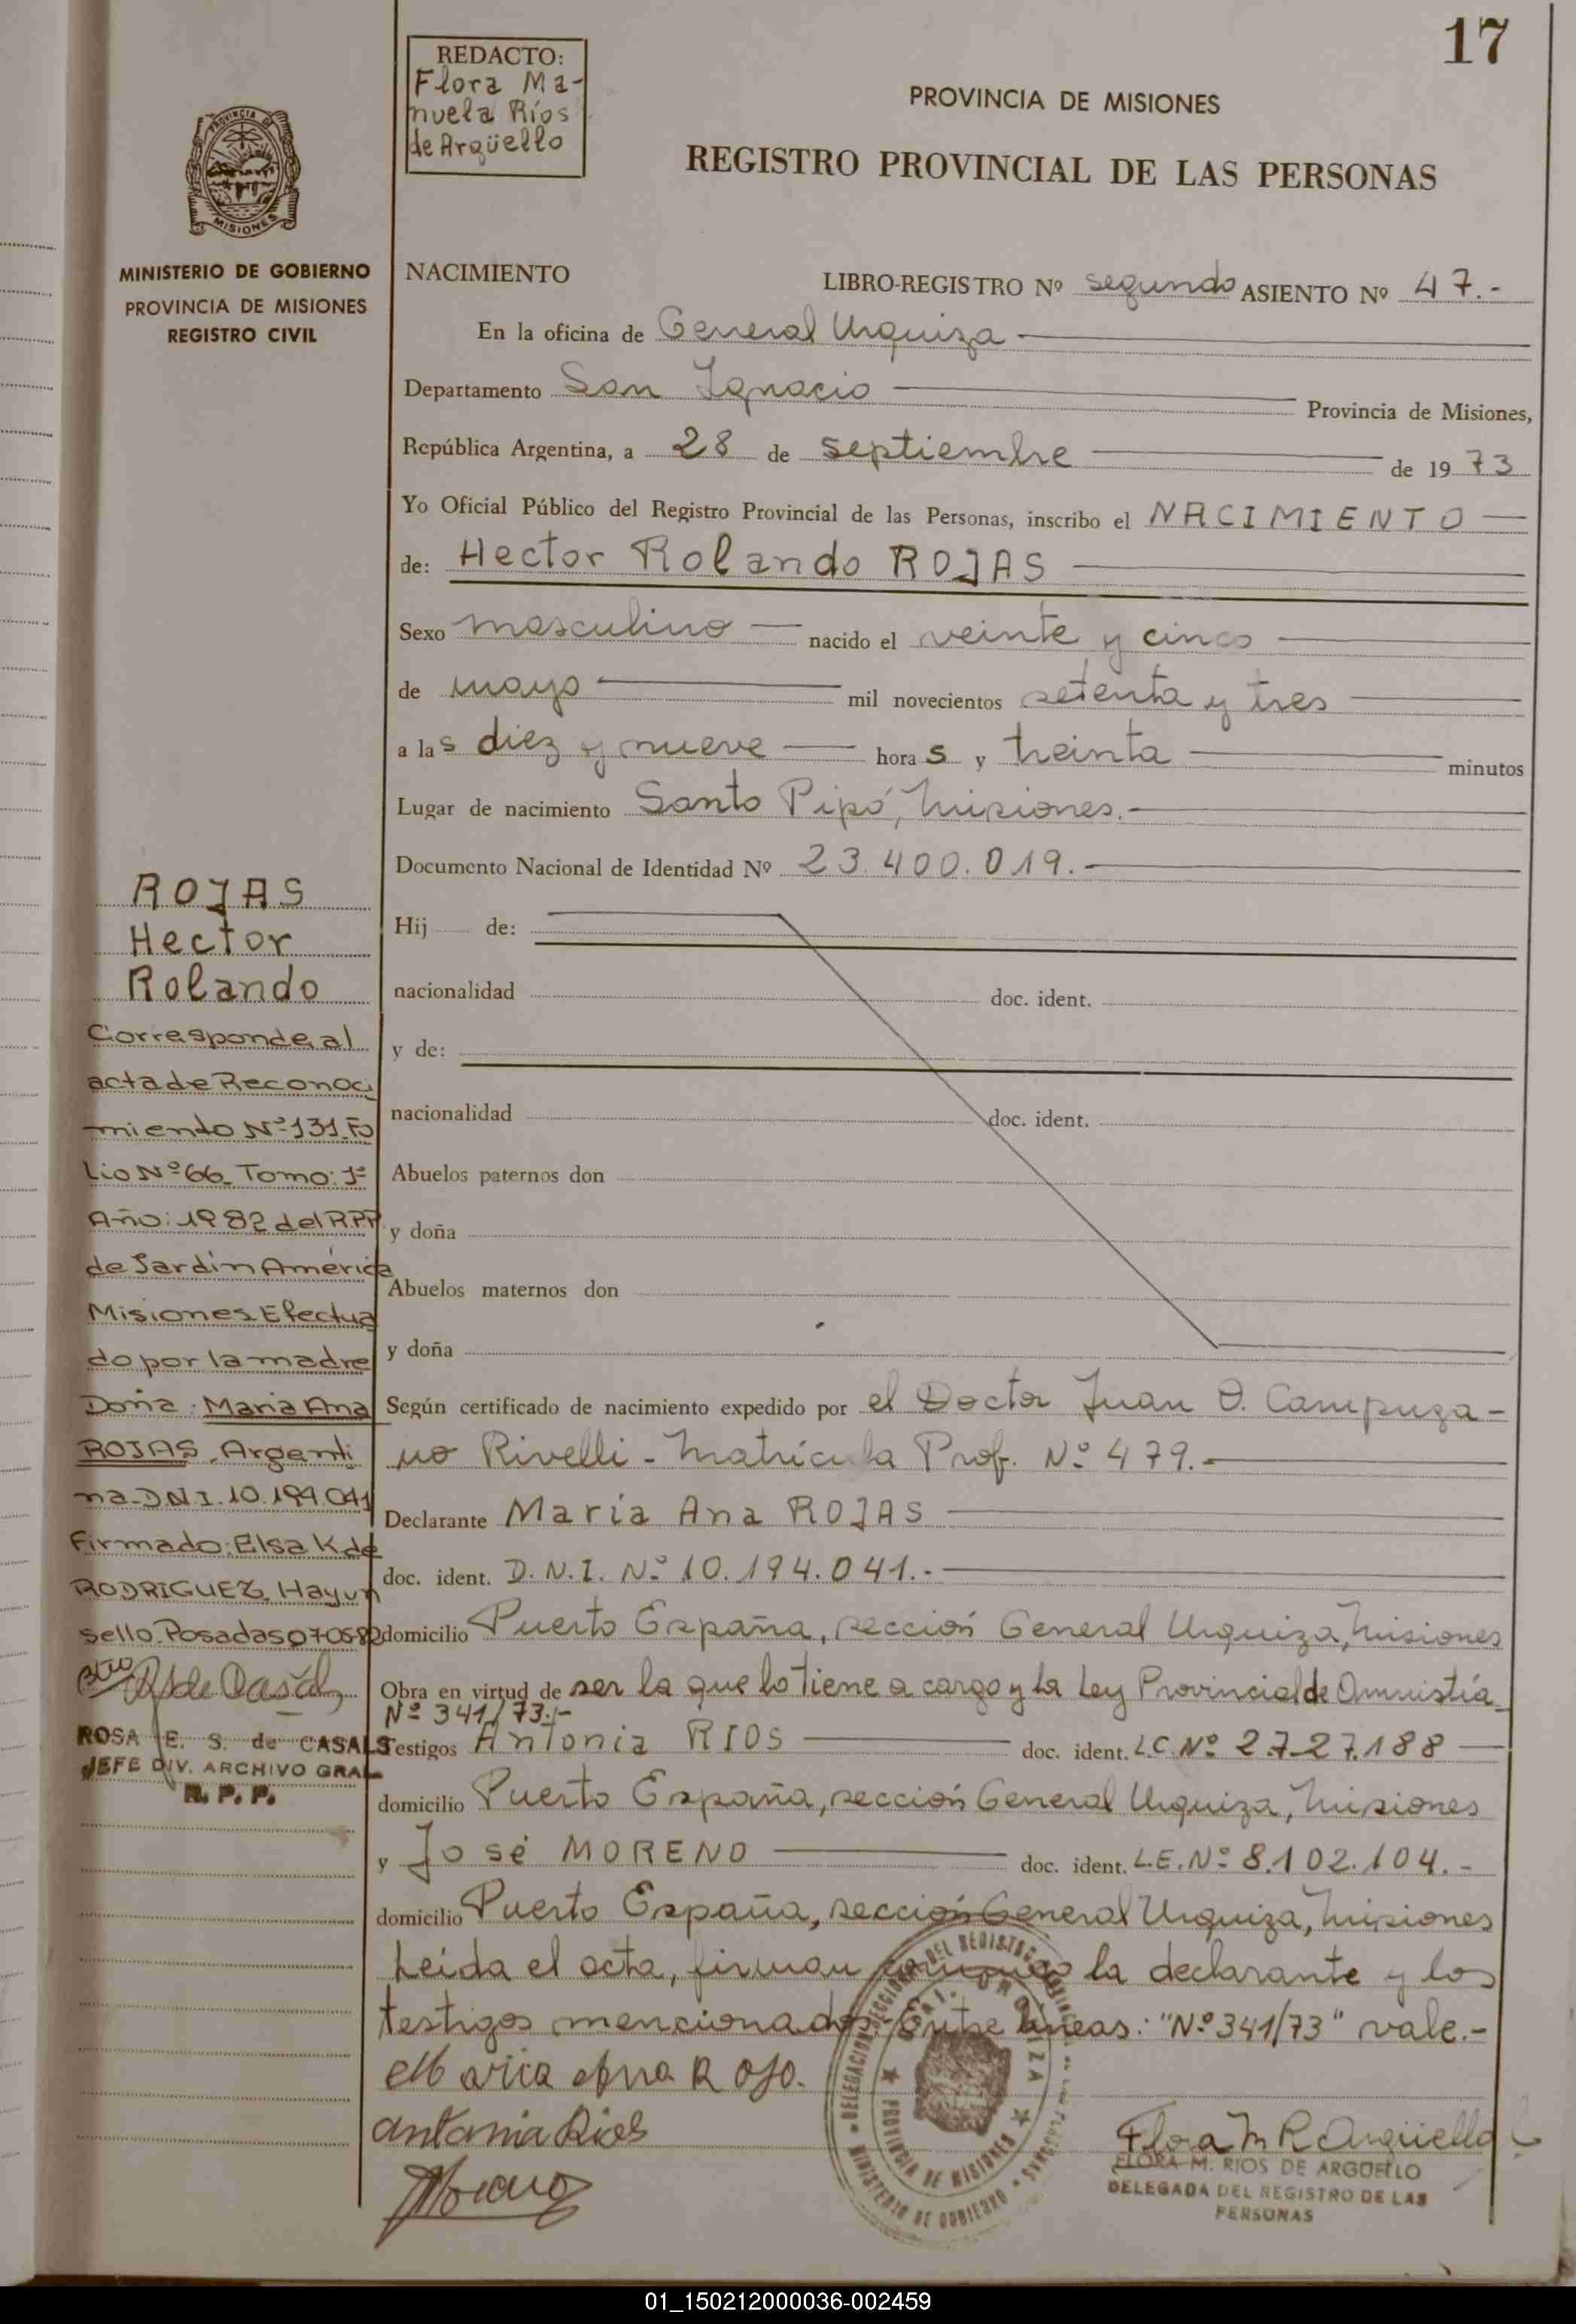 17
REDACTO:
Flora Ma-
nuela Ríos
de Argüello
PROVINCIA DE MISIONES
REGISTRO PROVINCIAL DE LAS PERSONAS
PROVINCIA DE
MISIONES
MINISTERIO DE GOBIERNO
PROVINCIA DE MISIONES
REGISTRO CIVIL
NACIMIENTO LIBRO-REGISTRO Nº segundo ASIENTO Nº 47.-
En la oficina de General Urquiza
Departamento San Ignacio Provincia de Misiones,
República Argentina, a 28 de septiembre de 1973
Yo Oficial Público del Registro Provincial de las Personas, inscribo el NACIMIENTO
de: Hector Rolando ROJAS
Sexo masculino nacido el veinte y cinco
de mayo mil novecientos setenta y tres
a las diez y nueve horas y treinta minutos
Lugar de nacimiento Santo Pipó, Misiones.-
Documento Nacional de Identidad Nº 23.400.019.-
Hij de:
nacionalidad doc. ident.
y de:
nacionalidad doc. ident.
Abuelos paternos don
y doña
Abuelos maternos don
y doña
Según certificado de nacimiento expedido por el Doctor Juan O. Campuza-
no Rivelli - Matrícula Prof. Nº 479.-
Declarante María Ana ROJAS
doc. ident. D.N.I. Nº 10.194.041.-
domicilio Puerto España, sección General Urquiza, Misiones
Obra en virtud de ser la que lo tiene a cargo y la Ley Provincial de Amnistía
Nº 341/73.-
Testigos Antonia RIOS doc. ident. L.C. Nº 2.727.188
domicilio Puerto España, sección General Urquiza, Misiones
y José MORENO doc. ident. L.E. Nº 8.102.104.-
domicilio Puerto España, sección General Urquiza, Misiones
Leída el acta, firman conmigo la declarante y los
testigos mencionados. Entre líneas: "Nº 341/73" vale.-
Maria Ana Rojo.
Antonia Rios
Moreno
Flora M R Argüello
FLORA M. RIOS DE ARGÜELLO
DELEGADA DEL REGISTRO DE LAS
PERSONAS
PROVINCIA DE MISIONES
MINISTERIO DE GOBIERNO
ROJAS
Hector
Rolando
Corresponde al
acta de Reconoci
miento Nº 131. Fo
lio Nº 66. Tomo: 1º
Año: 1982 del R.P.P.
de Jardín América
Misiones Efectua
do por la madre
Doña: Maria Ana
ROJAS. Argenti
na-D.N.I. 10.194.041
Firmado: Elsa K de
RODRIGUEZ. Hay un
sello. Posadas 070582
ROSA E. S. de CASALS
JEFE DIV. ARCHIVO GRAL
R. P. P.
01_150212000036-002459